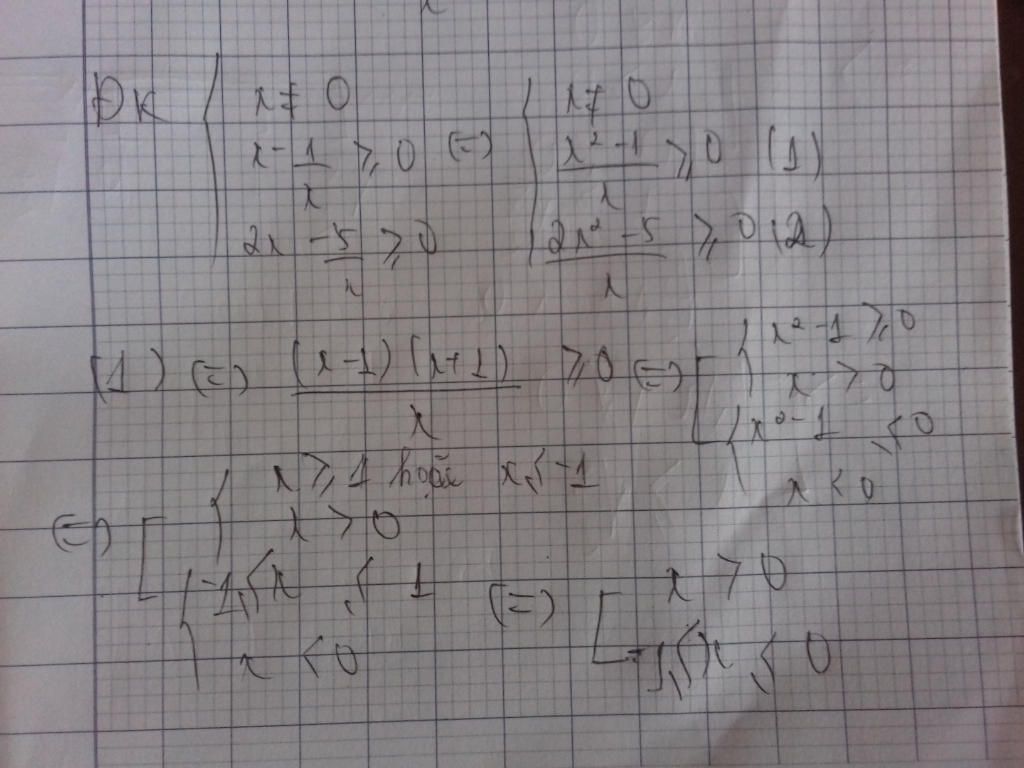 ĐK { x ≠ 0 { x ≠ 0
x - 1/x ⩾ 0 (=) (x² - 1)/x ⩾ 0 (1)
2x - 5/x ⩾ 0 (2x² - 5)/x ⩾ 0 (2)
(1) (=) (x-1)(x+1)/x ⩾ 0 (=) [ { x² - 1 ⩾ 0
x > 0
{ x² - 1 ⩽ 0
x < 0
(=) [ { x ⩾ 1 hoặc x ⩽ -1
x > 0
{ -1 ⩽ x ⩽ 1 (=) [ x > 0
x < 0 -1 ⩽ x < 0